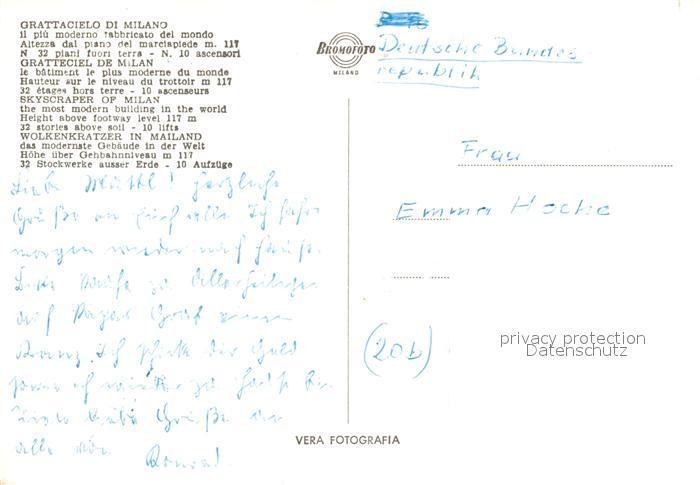 GRATTACIELO DI MILANO
il più moderno fabbricato del mondo
Altezza dal piano del marciapiede m. 117
N 32 piani fuori terra - N. 10 ascensori
GRATTECIEL DE MILAN
le bâtiment le plus moderne du monde
Hauteur sur le niveau du trottoir m 117
32 étages hors terre - 10 ascenseurs
SKYSCRAPER OF MILAN
the most modern building in the world
Height above footway level 117 m
32 stories above soil - 10 lifts
WOLKENKRATZER IN MAILAND
das modernste Gebäude in der Welt
Höhe über Gehbahnniveau m 117
32 Stockwerke ausser Erde - 10 Aufzüge
Liebe Muttl! Herzliche
Grüße an Euch alle Ich fahre
morgen wieder nach Hause.
Bitte kaufe zu Allerheiligen
auf Papas Grab einen
Kranz. Ich schicke das Geld
wieder zu Hause bin
Grüße an
alle von Konrad.
BROMOFOTO
MILANO
Deutsche Bundes
republik
Frau
Emma Hoche
(20b)
privacy protection
Datenschutz
VERA FOTOGRAFIA